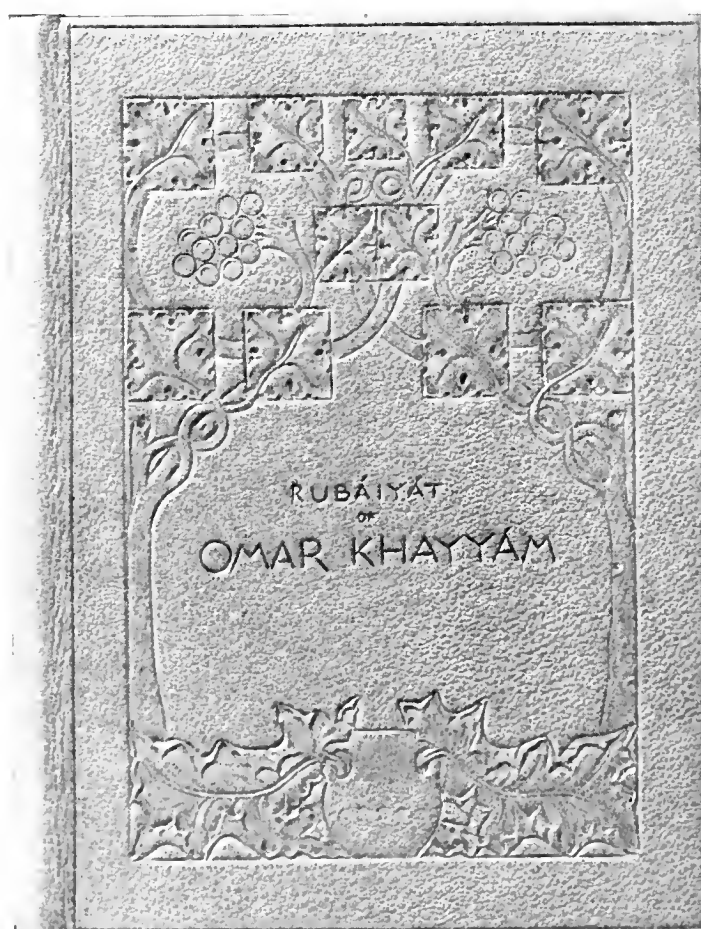 RUBÁIYÁT
OF
OMAR KHAYYÁM